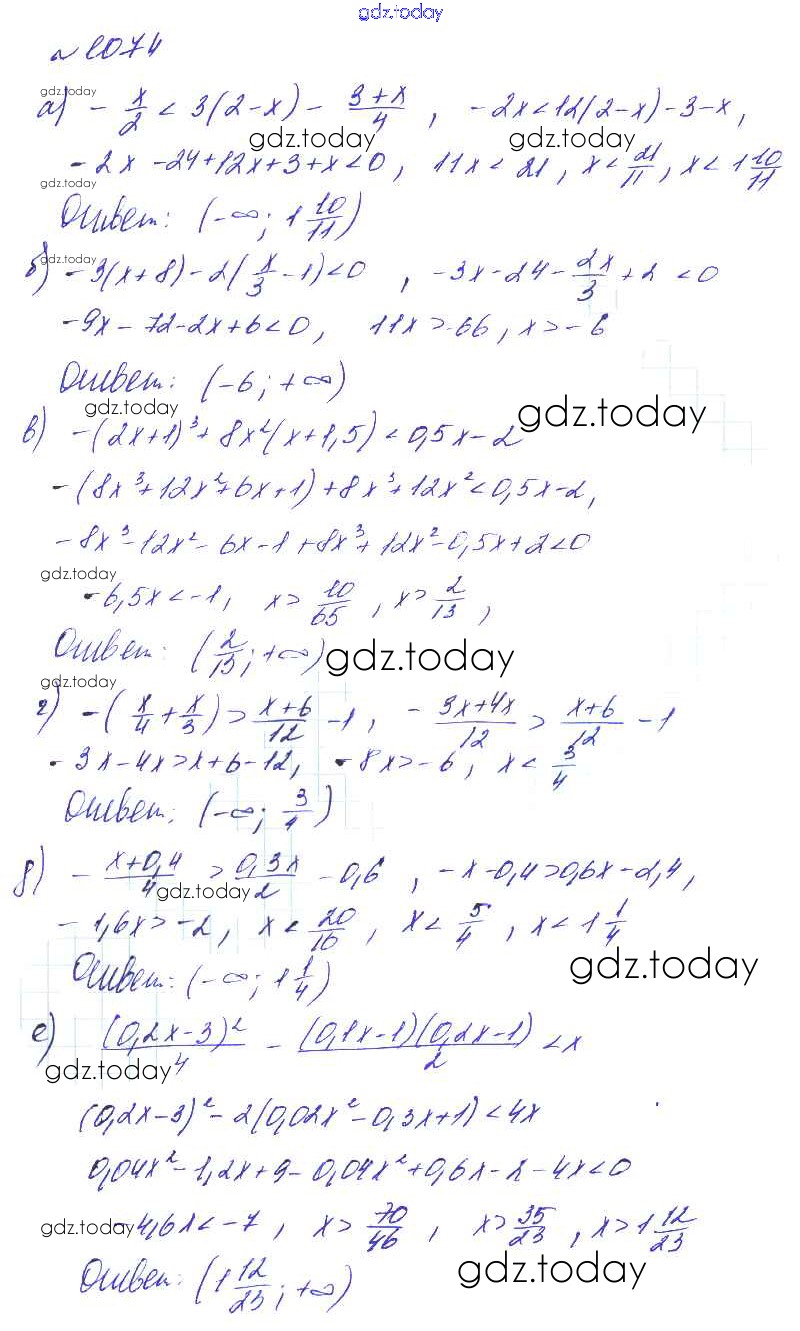 gdz.today
№ 2074
gdz.today
а) - x/2 < 3(2-x) - (3+x)/4 , -2x<12(2-x)-3-x,
gdz.today gdz.today
-2x -24+12x+3+x<0, 11x < 21, x < 21/11, x < 1 10/11
gdz.today
Ответ: (-∞; 1 10/11)
gdz.today
б) -3(x+8)-2(x/3 -1)<0 , -3x-24- 2x/3 +2 <0
-9x-72-2x+6<0, 11x>-66, x>-6
Ответ: (-6; +∞)
gdz.today gdz.today
в) -(2x+1)³+8x²(x+1,5)<0,5x-2
-(8x³+12x²+6x+1)+8x³+12x²<0,5x-2,
-8x³-12x²-6x-1+8x³+12x²-0,5x+2<0
gdz.today
-6,5x<-1, x> 10/65 , x> 2/13 ,
Ответ: (2/13; +∞)
gdz.today
gdz.today
г) -(x/4 + x/3) > (x+6)/12 -1, - (3x+4x)/12 > (x+6)/12 -1
-3x-4x>x+6-12, -8x>-6, x< 3/4
Ответ: (-∞; 3/4)
д) - (x+0,4)/4 > 0,3x/2 -0,6 , -x-0,4>0,6x-2,4,
gdz.today
-1,6x>-2, x< 20/16 , x< 5/4 , x<1 1/4
Ответ: (-∞; 1 1/4)
gdz.today
е) (0,2x-3)²/4 - (0,1x-1)(0,2x-1)/2 <x
gdz.today
(0,2x-3)²-2(0,02x²-0,3x+1)<4x
0,04x²-1,2x+9-0,04x²+0,6x-2-4x<0
gdz.today
-4,6x<-7, x> 70/46 , x> 35/23 , x>1 12/23
Ответ: (1 12/23; +∞)
gdz.today